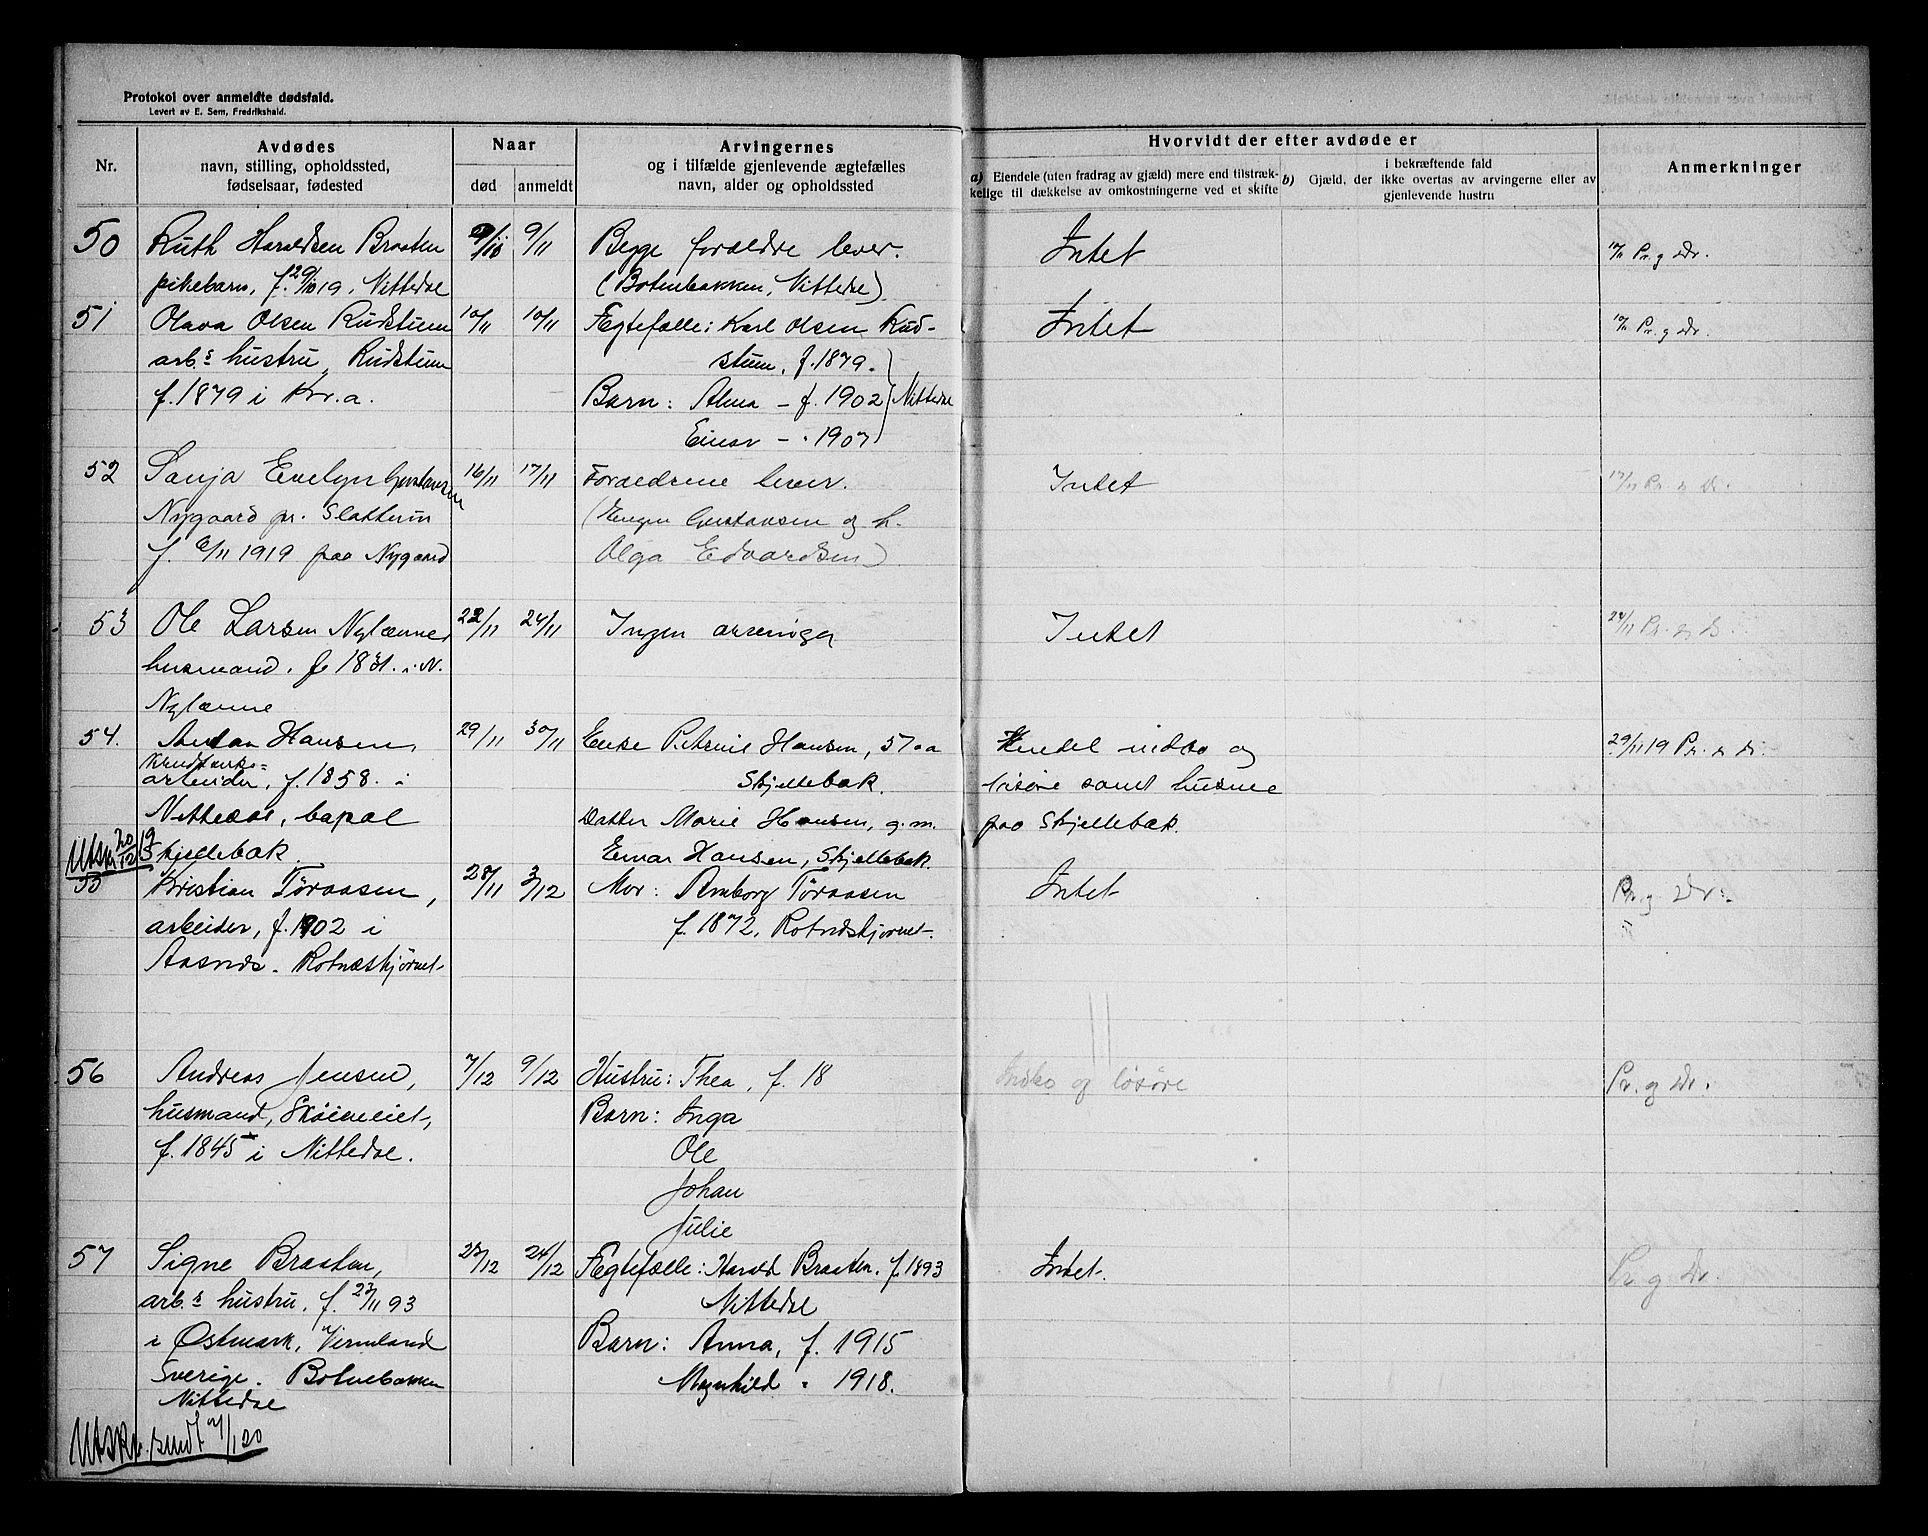 Protokol over anmeldte dødsfald.
Levert av E. Sem, Fredrikshald.
Nr.
Avdødes
navn, stilling, opholdssted,
fødselsaar, fødested
Naar
død anmeldt
Arvingernes
og i tilfælde gjenlevende ægtefælles
navn, alder og opholdssted
Hvorvidt der efter avdøde er
a) Eiendele (uten fradrag av gjæld) mere end tilstræk-
kelige til dækkelse av omkostningerne ved et skifte
b) i bekræftende fald
Gjæld, der ikke overtas av arvingerne eller av
gjenlevende hustru
Anmerkninger
50 Ruth Haraldsen Braaten /10 9/11 Begge forældre lever. Intet Pr. g Dr.
pikebarn, f. 29/10 19, Nittedal (Botnebakken, Nittedal)
51 Olava Olsen Rudstuen 10/11 10/11 Ægtefælle: Karl Olsen Rud- Intet 10/11 Pr. g Dr.
arb.s hustru, Rudstuen stuen, f. 1879.
f. 1879 i Kr.a. Barn: Alma - f. 1902 Nittedal
Einar - " 1907
52 Sanja Evelyn Gustavsen 16/11 17/11 Forældrene lever. Intet 17/11 Pr. & Dr.
Nygaard pr. Slattum (Eugen Gustavsen og h.
f. 6/11 1919 paa Nygaard Olga Edvardsen)
53 Ole Larsen Nylænne 22/11 24/11 Ingen arvinger Intet 24/11 Pr. og D.
husmand, f. 1831. i N.
Nylænne
54. Anton Hansen, 29/11 30/11 Enke Petrine Hansen, 57 aa Endel indbo og 29/11 19 Pr. & Dr.
Krudtverks-
arbeider, f. 1858. i Skjellebæk. løsøre samt husene
Nittedal, bopæl Datter Marie Hansen, g.m. paa Skjellebæk.
Skjellebæk. Einar Hansen, Skjellebæk.
Utskr 20/12 19
55 Kristian Tøraasen, 28/11 3/12 Mor: Amborg Tøraasen Intet Pr. g Dr.
arbeider, f. 1902 i f. 1872, Rotnæskjørnet.
Aasnæs. Rotnæskjørnet
56 Andreas Jensen, 7/12 9/12 Hustru: Thea, f. 18 Indbo og løsøre Pr. g Dr.
husmand, Skøieneiet, Barn: Inga
f. 1845 i Nittedal. Ole
Johan
Julie
57 Signe Braaten, 23/12 24/12 Ægtefælle: Harald Braaten. f. 1893 Intet. Pr. g Dr.
arb.s hustru, f. 27/11 93 Nittedal
i Østmark, Vermland Barn: Anna, f. 1915
Sverige. Botnebakken Magnhild " 1918.
Nittedal
Utskr. sendt 7/1 20